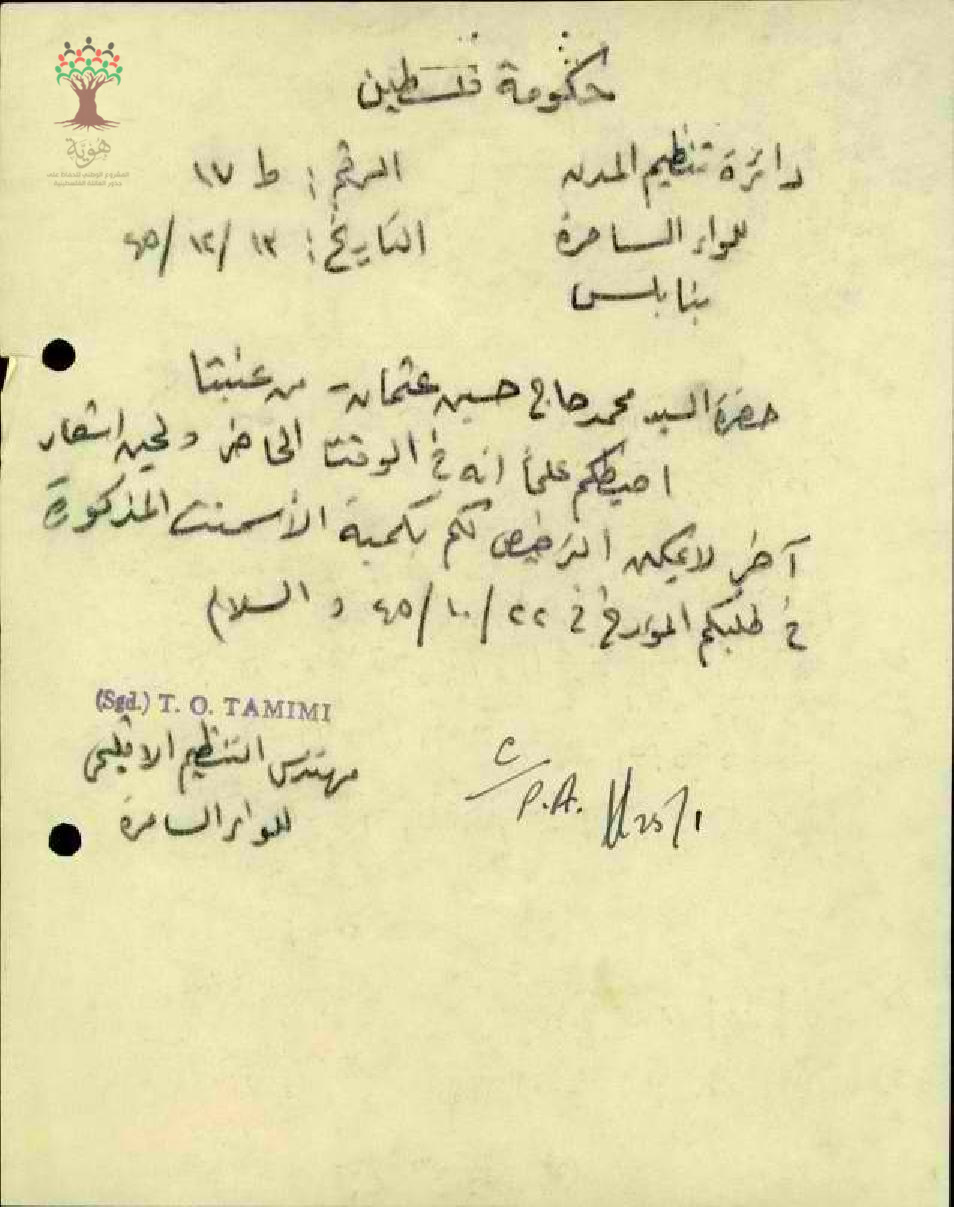 هوية
المشروع الوطني للحفاظ على
جذور العائلة الفلسطينية
حكومة فلسطين
دائرة تنظيم المدن الرقم : ط ١٧
للواء السامرة التاريخ : ١٣ / ١٢ / ٤٥
بنابلس
حضرة السيد محمد حاج حسين عثمان من عنبتا
احيطكم علماً انه في الوقت الحاضر ولحين اشعار
آخر لا يمكن الترخيص لكم بكمية الأسمنت المذكورة
في طلبكم الموارخ في ٢٢ / ١٠ / ٤٥ و السلام
(Sgd.) T. O. TAMIMI
مهندس التنظيم الاقليمي
للواء السامرة
C
P.A. 25/1